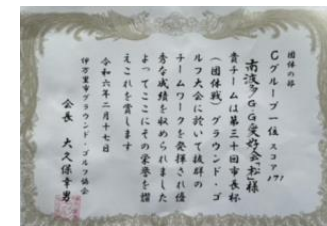 団体の部
Cグループ一位 スコア171
南波多GG愛好会「松」様
貴チームは第三十回市長杯
(団体戦)グラウンド・ゴ
ルフ大会に於いて抜群の
チームワークを発揮され優
秀な成績を収められました
よってここにその栄誉を讃
えこれを賞します
令和六年二月十七日
伊万里市グラウンド・ゴルフ協会
会長 大久保幸男